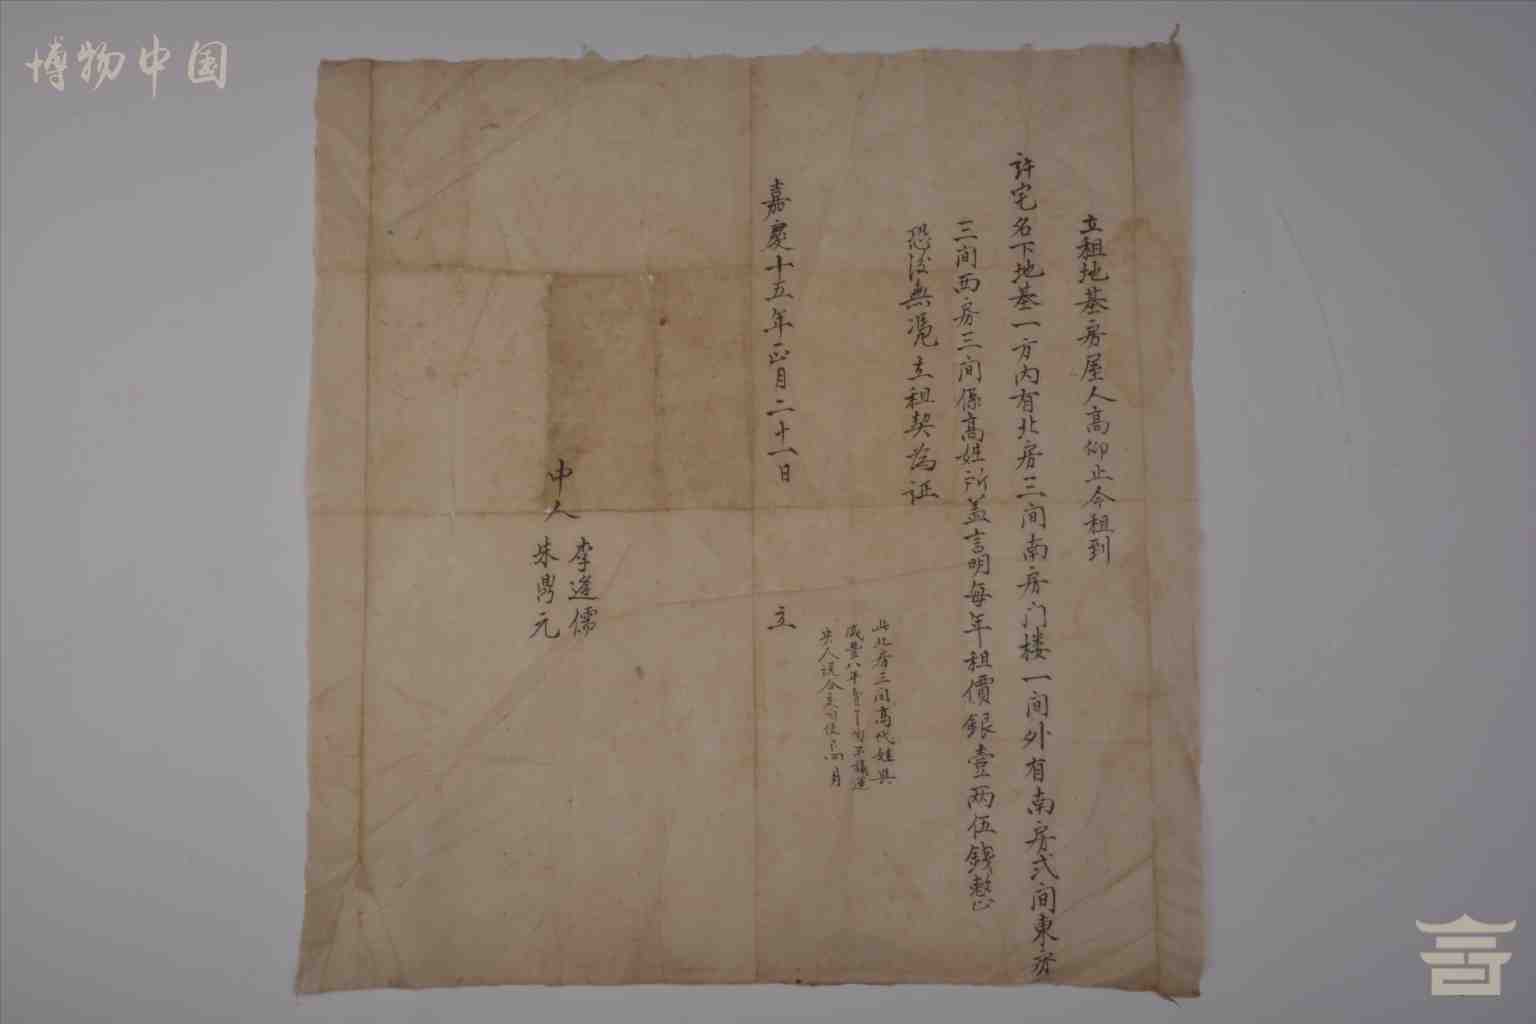 博物中国
立租地基房屋人高仰止今租到
許宅名下地基一方内有北房三间南房门楼一间外有南房弍间東房
三间西房三间係高姓所盖言明每年租價銀壹两伍錢整
恐後無凭立租契為证
此北房三间高代姓與
咸豐八年不議連
央人說合
嘉慶十五年正月二十一日 立
中人
李進儒
朱鼎元